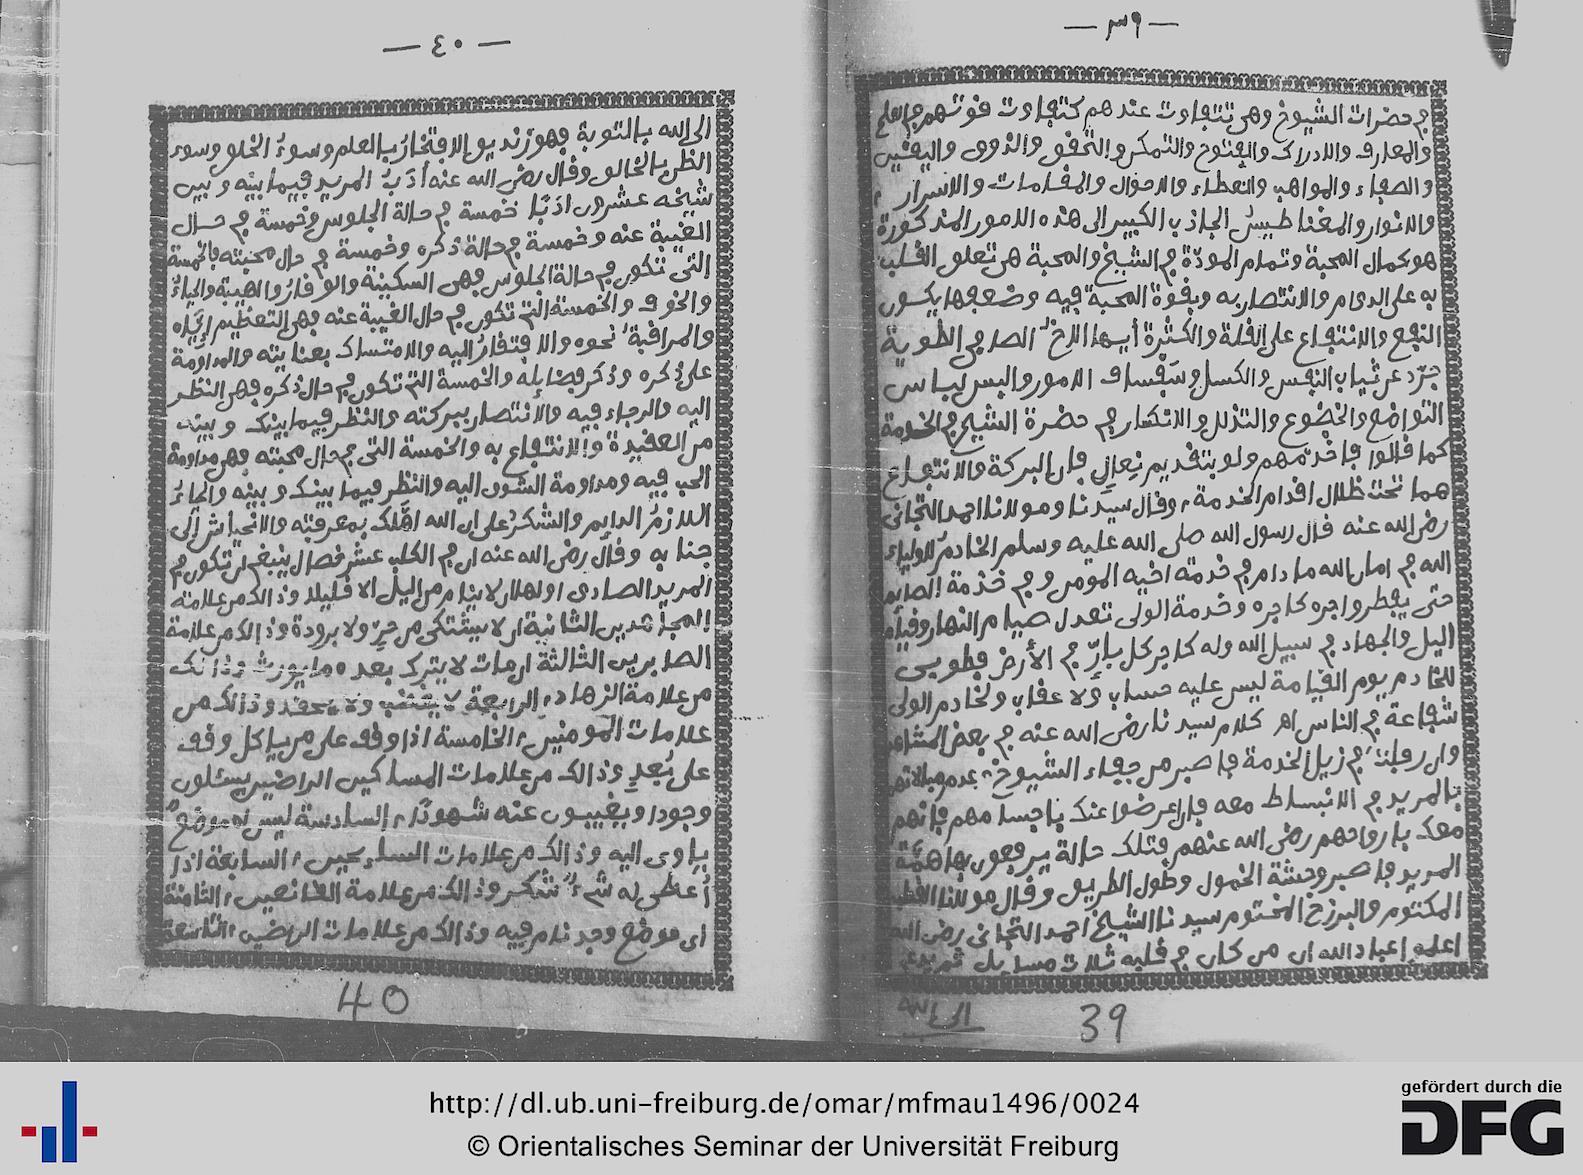 — ٣٩ —
في حضرات الشيوخ وهي تتفاوت عندهم كتفاوت قوتهم في العلم
والمعارف والادراك والفتوح والتمكن والتحقق والذوق واليقين
والصفاء والمواهب والعطاء والاحوال والمقامات والاسرار
والانوار والمغناطيس الجاذب الكبير الى هذه الامور المذكورة
هو كمال المحبة وتمام المودّة في الشيخ والمحبة هي تعلق القلب
به على الدوام والانتصار به وبقوة المحبة فيه وضعفها يكون
النفع والانتفاع على القلة والكثرة أيها الاخ الصافي الطوية
جرّد عن ثياب النفس والكسل وسفساف الامور والبس لباس
التواضع والخضوع والتذلل والانكسار في حضرة الشيخ في الخدمة
كما قالوا فاخدمهم ولو بتقديم نعال فان البركة والانتفاع
هما تحت ظلال اقدام الخدمة، وقال سيدنا ومولانا احمد التجاني
رضي الله عنه قال رسول الله صلى الله عليه وسلم الخادم للاولياء
الله في امان الله ما دام في خدمة اخيه المومن وفي خدمة الصائم
حتى يفطر واجره كاجره وخدمة الولي تعدل صيام النهار وقيام
اليل والجهاد في سبيل الله وله كاجر كل بارّ في الأرض فطوبى
للخادم يوم القيامة ليس عليه حساب ولا عقاب ولخادم الولي
شفاعة في الناس اهـ كلام سيدنا رضي الله عنه في بعض المشاهد
وان رقيت في زيل الخدمة فاصبر من جفاء الشيوخ بعدم مبالاتهم
بالمريد في الانبساط معه فان اعرضوا عنك باجسامهم فإنهم
معك بارواحهم رضي الله عنهم فتلك حالة يرفعون بها همّة
المريد فاصبر وحشة الخمول وطول الطريق وقال مولانا القطب
المكتوم والبرزخ المختوم سيدنا الشيخ احمد التجاني رضي الله
اعلموا عباد الله ان من كان في قلبه ثلاث مسايل ثم يدع
الى الله
39
— ٤٠ —
الى الله بالتوبة فهو زنديق الافتخار بالعلم وسوء الخلق وسوء
الظن بالخالق وقال رضي الله عنه أدب المريد فيما بينه وبين
شيخه عشرون ادبًا خمسة في حالة الجلوس وخمسة في حال
الغيبة عنه وخمسة في حالة ذكره وخمسة في حال محبته فالخمسة
التي تكون في حالة الجلوس فهي السكينة والوقار والهيبة والحياء
والخوف والخمسة التي تكون في حال الغيبة عنه فهي التعظيم إيّاه
والمراقبة نحوه والافتقار اليه والامتساك بعنايته والمداومة
على ذكره وذكر فضايله والخمسة التي تكون في حال ذكره فهي النظر
اليه والرجاء فيه والانتصار ببركته والنظر فيما بينك وبينه
من العقيدة والانتفاع به والخمسة التي في حال محبته فهي مداومة
الحب فيه ومداومة الشوق اليه والنظر فيما بينك وبينه والحياء
اللازم الدايم والشكر على ان الله اهّلك بمعرفته والانحياش إلى
جنابه وقال رضي الله عنه ان في الكلب عشر خصال ينبغي ان تكون في
المريد الصادق اولها ان لا ينام من اليل الا قليلا وذالك من علامة
المجاهدين الثانية ان لا يشتكي من حرّ ولا برودة وذالك من علامة
الصابرين الثالثة ان مات لا يترك بعده ما يورث وذالك
من علامة الزهاد، الرابعة لا يغضب ولا يحقد وذالك من
علامات المومنين، الخامسة اذا وقف على من ياكل وقف
على بُعدٍ وذالك من علامات المساكين الراضين يسئلون
وجودا ويغيبون عنه شهودًا، السادسة ليس له موضعٌ
ياوى اليه وذالك من علامات السايحين، السابعة اذا
أعطي له شيءٌ شكر وذالك من علامة القانعين، الثامنة
اي موضع وجد نام فيه وذالك من علامات الراضين، التاسعة
40
http://dl.ub.uni-freiburg.de/omar/mfmau1496/0024
© Orientalisches Seminar der Universität Freiburg
gefördert durch die
DFG